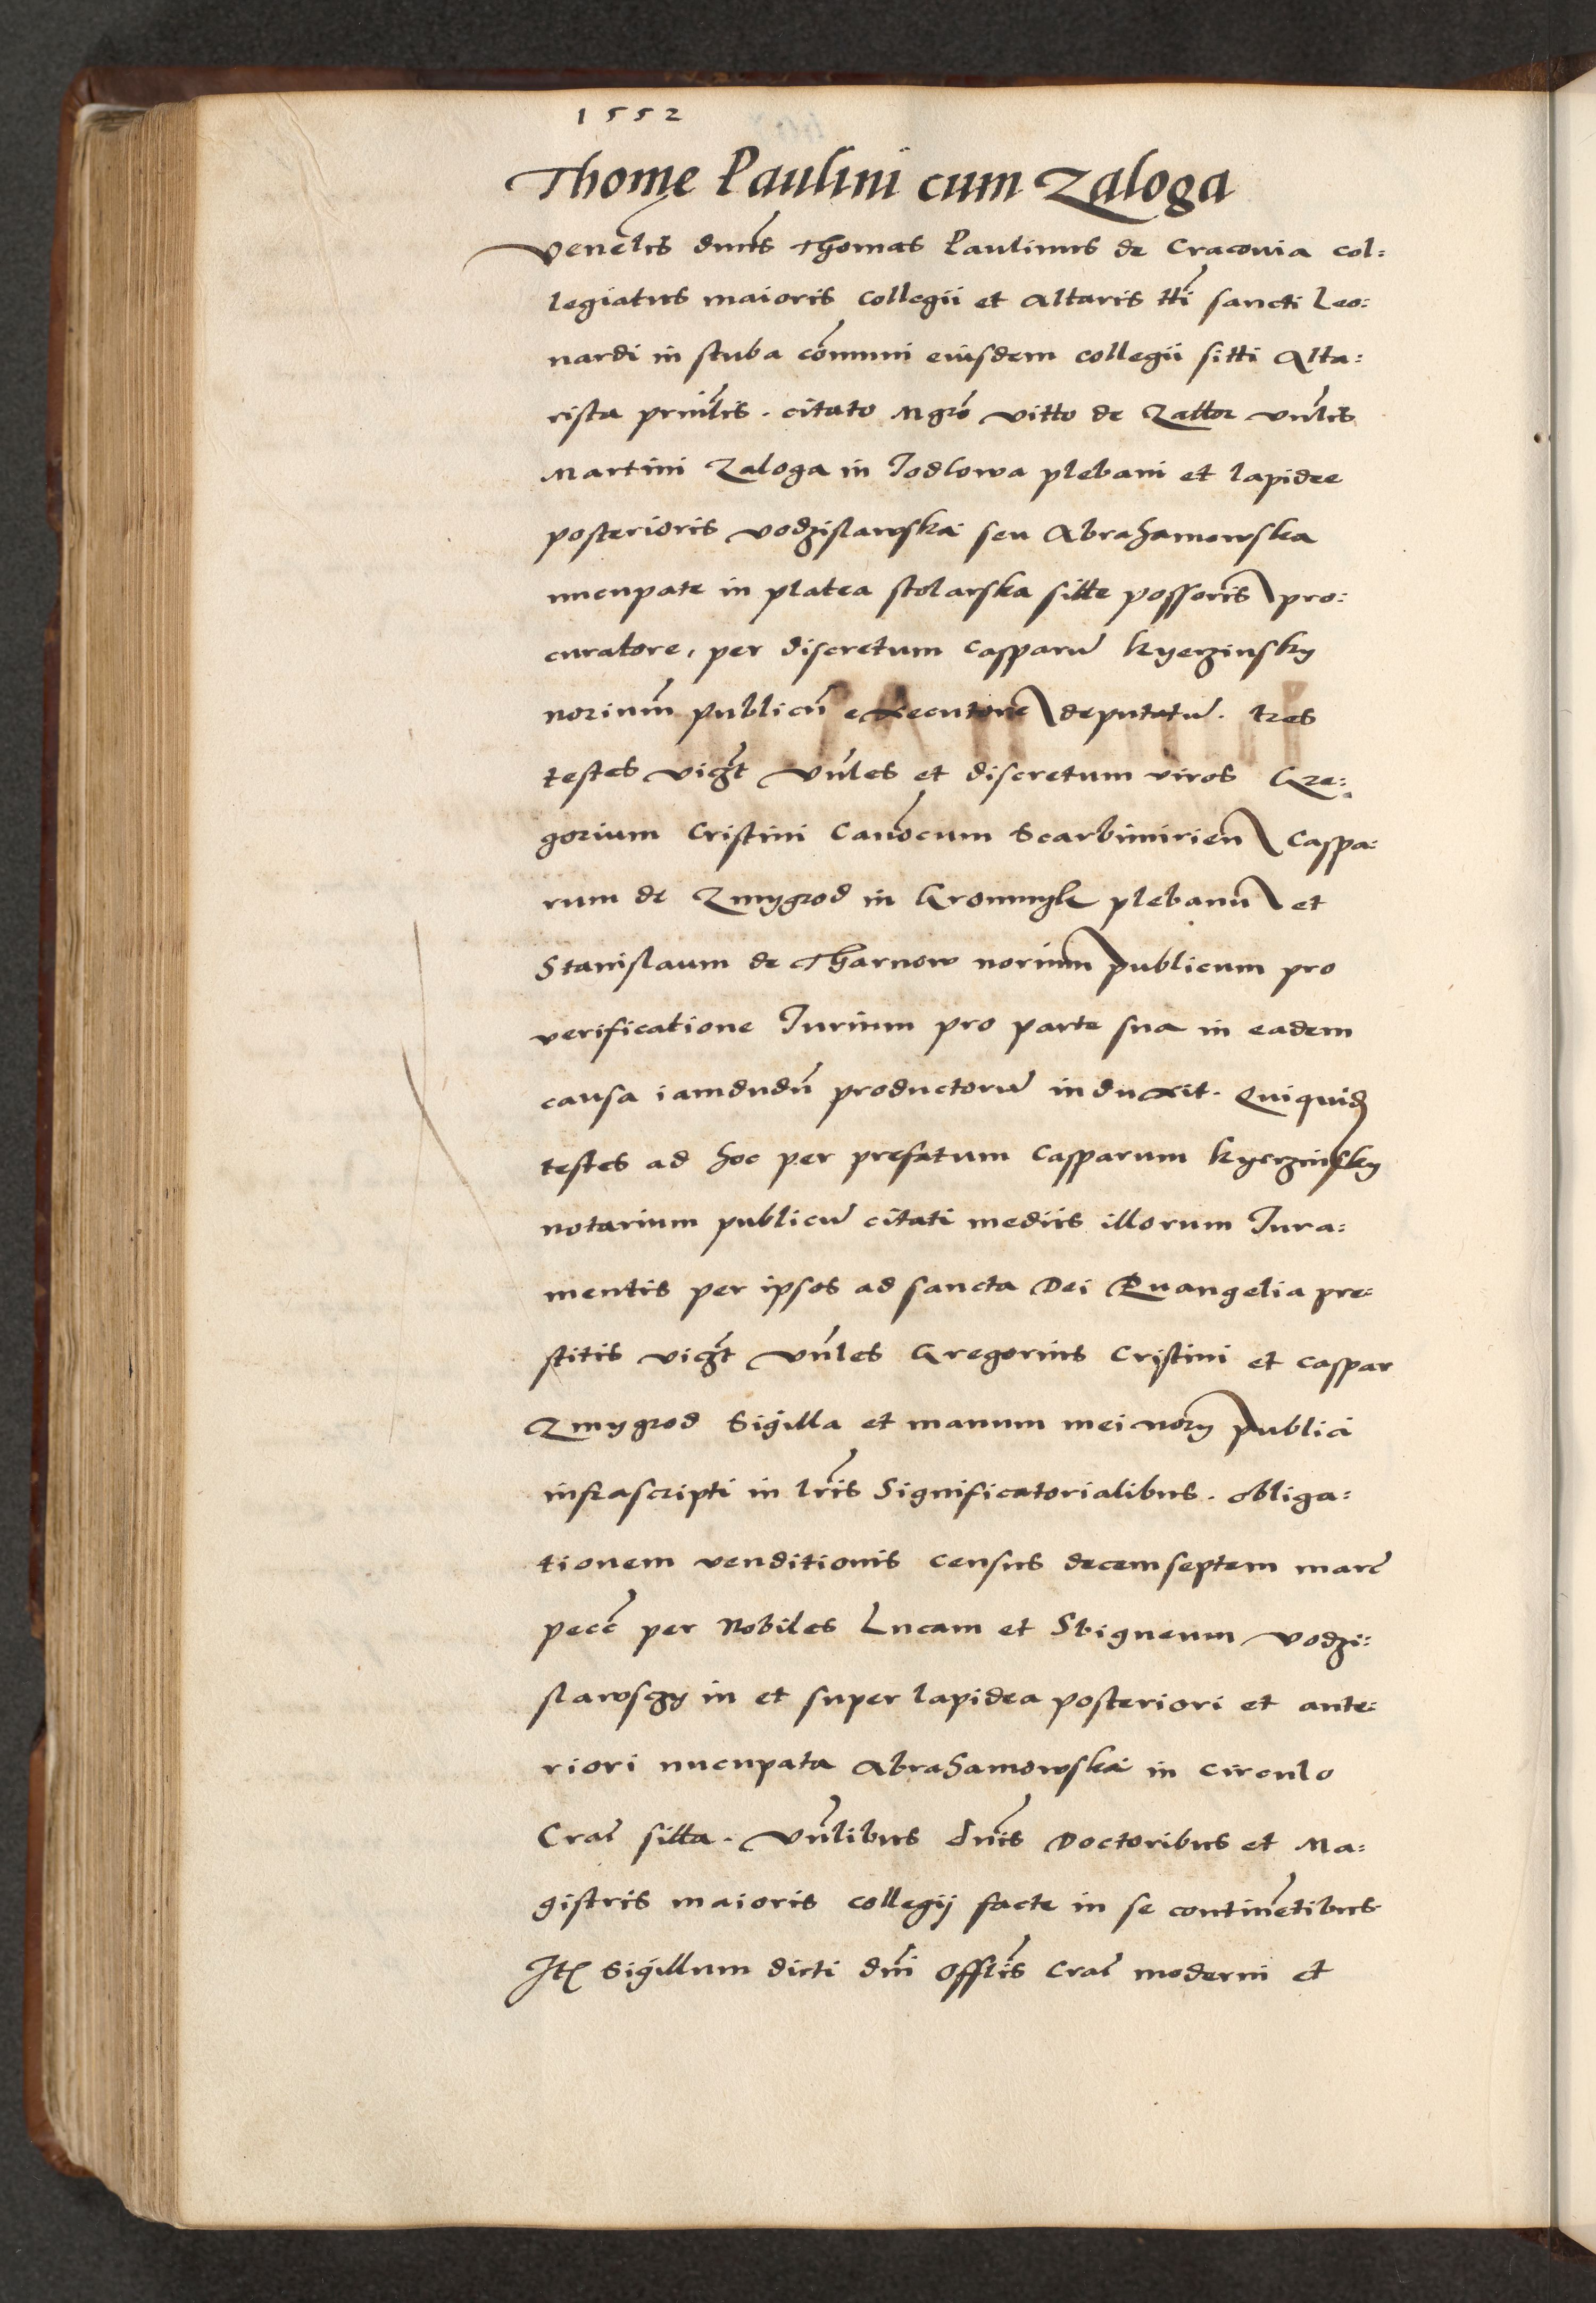 1552
Thome Paulini cum Zaloga
Venelis dnus Thomas Paulinus de Cracovia col=
legiatus maioris collegii et altaris tti sancti Leo=
nardi in stuba comuni eiusdem collegii sitti Alta=
rista princlis. citato Mgro Vitto de Zator vnlis
Martini Zaloga in Jodlowa plebani et lapidee
posterioris vodzislawska seu Abrahamowska
nucupate in platea stolarska sitte possoris pro=
curatore, per discretum Casparu Kyerzinsky
norium publicu executore deputatu. tres
testes vigt vnles et discretum viros Gre=
gorium Cristini Canocum Scarbimirien Caspa=
rum de Zmygrod in Gromnyk plebanu et
Stanislaum de Tharnow norium publicum pro
verificatione Jurium pro parte sua in eadem
causa iamdudu productoru induxit. Quiquid
testes ad hoc per prefatum Casparum Kyerzinsky
notarium publicu citati mediis illorum Jura=
mentis per ipsos ad sancta Dei Evangelia pre=
stitis vigt vnles Gregorius Cristini et Caspar
Zmygrod Sigilla et manum mei nory publici
infrascripti in lris Significatorialibus. obliga=
tionem venditionis census decemseptem marc
pecc per Nobiles Lucam et Sbigneum vodzi=
slawsczy in et super lapidea posteriori et ante=
riori nucupata Abrahamowska in circulo
Crac sitta. Vnlibus dnis Doctoribus et Ma=
gistris maioris collegij facte in se continetibus
Ite Sigillum dicti dni Offlis Crac moderni et